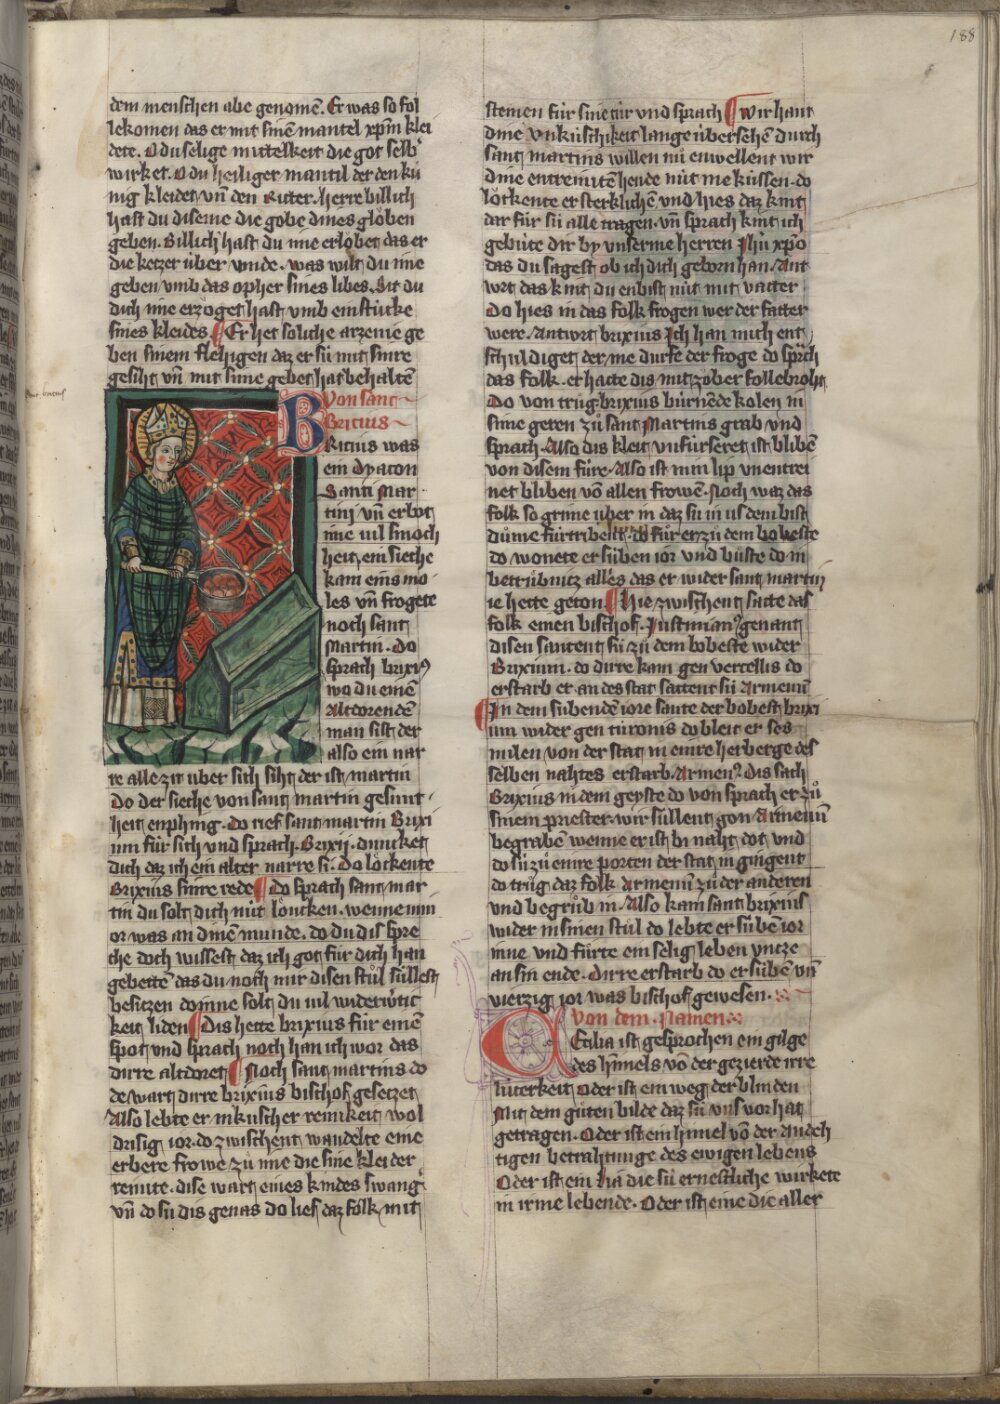 188
dem menschen abe genomē. Er was so fol
lekomen das er mit sinē mantel xp̄m klei
dete. O du selige mittelkeit die got selb
wirket. O du heiliger mantil der den kú
nig kleidet vn̄ den Ritter. herre billich
hast du diseme die gobe dines glöben
geben. Billich hast du ime erlöbet das er
die ketzer úber vinde. was wilt du ime
geben vmb das opher sines libes. Sit du
dich ime erzöget hast vmb ein stúcke
sines kleides Er het soliche arzenie ge
ben sinem flehigen daz er sú mit sinre
gesiht vn̄ mit sime gebet hat behaltē
Von sant
Bricius
Ricius was
ein dyacon
Santi Mar
tini vn̄ erbot
ime uil smoch
heit, ein sieche
kam eins mo
les vn̄ frogete
noch sant
Martin. Do
sprach brixiꝰ
wo du einē
Altdorendē
man sist der
also ein nar
re alle zit úber sich siht der ist martin
Do der sieche von sant martin gesunt
heit enphing. do rief sant martin Brixi
um fúr sich vnd sprach. Brixij. duncket
dich daz ich ein alter narre si. Do löckente
Brixius sinre rede Do sprach sant mar
tin du solt dich nút löucken. wenne min
or was an dinē munde. do du dis spre
che doch wissest daz ich got fúr dich han
gebettē das du noch mir disen stůl súllest
besitzen dorinne solt du uil widerwtic
keit liden Dis hette brixius fúr einē
spot vnd sprach noch han ich wor das
dirre altdoret Noch sant martins do
de wart dirre brixius bischof gesetzet
Also lebte er in kúscher reinikeit wol
drisig ior. do zwischent wandelte eine
erbere frowe zů ime die sine kleider
reinite. dise wart eines kindes swang̓
vn̄ do sú dis genas do lief daz folk mit
steinen fúr sine túr vnd sprach Wir hant
dine vnkúschikeit lange úbersehē durch
sant martins willen nů enwellent wir
dine entreinitē hende nút me kússen. do
löckente er sterklichē vnd hies daz kint
dar fúr sú alle tragen. vn̄ sprach kint ich
gebúte dir by vnserme herren Jh̄u xp̄o
das du sagest ob ich dich geborn han. Ant
wrt das kint du enbist nút min vatter
Do hies in das folk frogen wer der fatter
were. Antwort brixius Ich han mich ent
schuldiget, der me durfe der froge do sprch
das folk. er hatte dis mit zöber follebroht
Do von trůg brixius búrnēde kolen in
sime geren zů sant Martins grab vnd
sprach. Also dis kleit vnfúrseret ist blibē
von disem fúre. Also ist min lip vnentrei
net bliben vō allen frowē. Noch waz das
folk so grime úber in daz sú in us dem bist
důme fúrtribent. do fůr er zů dem boweste
do wonete er súben ior vnd bůste do in
betrúbnitz alles das er wider sant martin
ie hette geton Hie zwischent satte das
folk einen bischof. Justinianꝰ genant
disen santent sú zů dem bobeste wider
Brixium. do dirre kam gen vercellis do
erstarb er. an des stat sattent sú Armeniū
In dem súbendē iore sante der bobest brixi
um wider gen túronis do bleit er ses
milen von der stat in einre herberge des
selben nahtes erstarb. Armenꝰ. Dis sach
Brixius in dem geyste do von sprach er zů
sinem priester. wir súllent gon Armeniū
begrabē wenne er ist bi naht dot vnd
do sú zů einre porten der stat in gingent
do trůg daz folk Armeniū zů der anderen
vnd begrůb in. Also kam sant brixius
wider in sinen stůl do lebte er súbē ior
inne vnd fúrte ein selig leben vntze
an sin ende. Dirre erstarb do er súbē vn̄
vierzig ior was bischof gewesen.
Von dem Namen
Ecilia ist gesprochen ein gilge
des himels vō der gezierde irre
luterkeit Oder ist ein weg der blinden
Mit dem gůten bilde daz sú vns vor hat
getragen. Oder ist ein himel vō der andeh
tigen betrahtunge des ewigen lebens
Oder ist ein lia die sú ernestliche wirkete
in irme lebende. Oder ist eine die aller